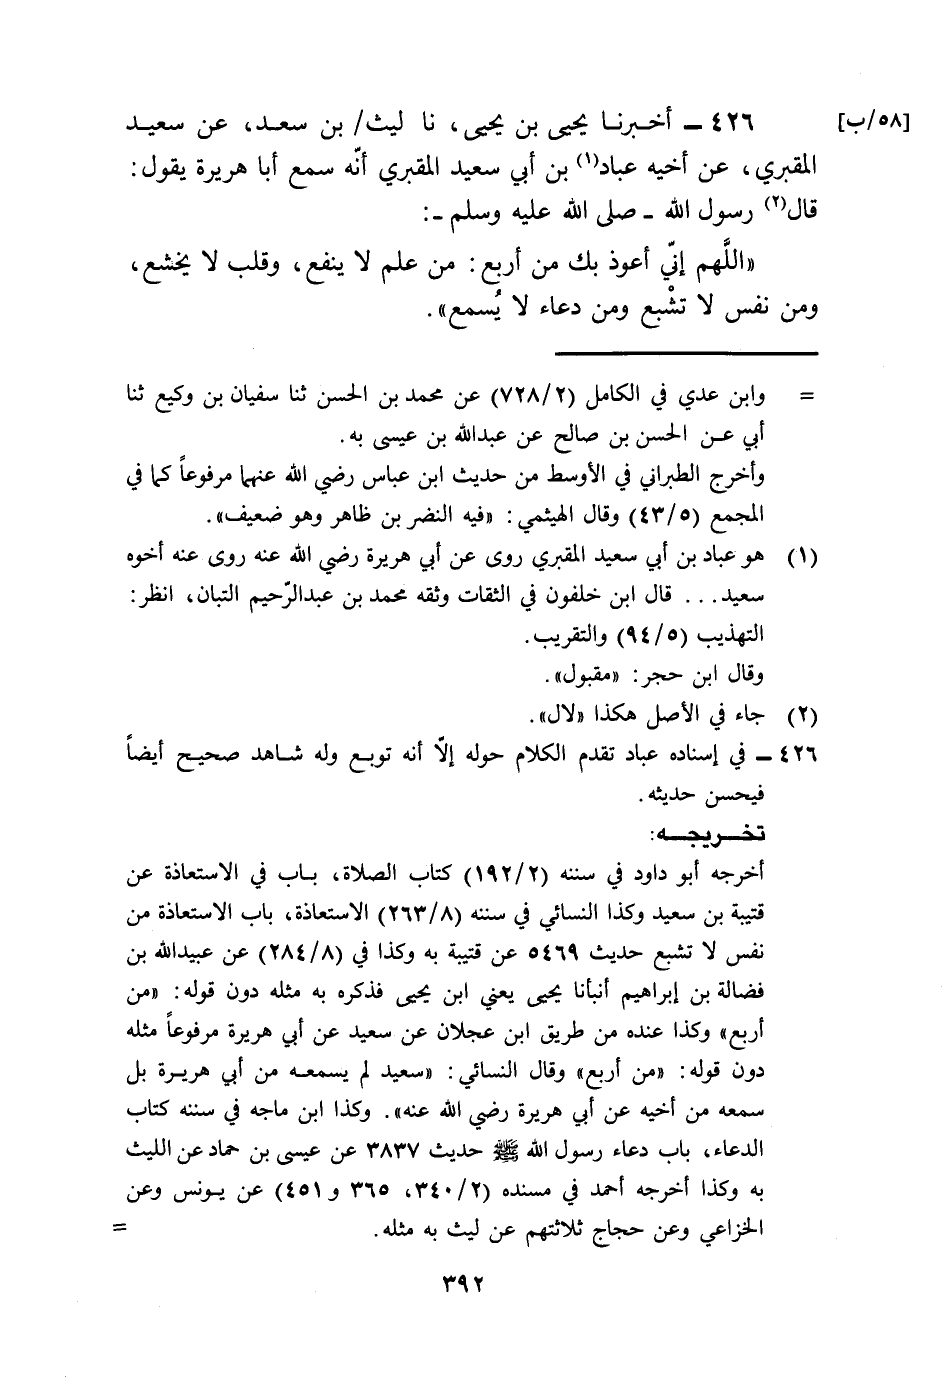 [٥٨/ب] ٤٢٦ ــ أخبرنا يحيى بن يحيى، نا ليث/ بن سعد، عن سعيد
المقبري، عن أخيه عباد(١) بن أبي سعيد المقبري أنّه سمع أبا هريرة يقول:
قال(٢) رسول الله ـ صلى الله عليه وسلم ـ:
«اللَّهم إنّي أعوذ بك من أربع: من علم لا ينفع، وقلب لا يخشع،
ومن نفس لا تشْبع ومن دعاء لا يُسمع».
= وابن عدي في الكامل (٧٢٨/٢) عن محمد بن الحسن ثنا سفيان بن وكيع ثنا
أبي عن الحسن بن صالح عن عبدالله بن عيسى به.
وأخرج الطبراني في الأوسط من حديث ابن عباس رضي الله عنهما مرفوعاً كما في
المجمع (٤٣/٥) وقال الهيثمي: «فيه النضر بن ظاهر وهو ضعيف».
(١) هو عباد بن أبي سعيد المقبري روى عن أبي هريرة رضي الله عنه روى عنه أخوه
سعيد... قال ابن خلفون في الثقات وثقه محمد بن عبدالرّحيم التبان، انظر:
التهذيب (٩٤/٥) والتقريب.
وقال ابن حجر: «مقبول».
(٢) جاء في الأصل هكذا «لال».
٤٢٦ ــ في إسناده عباد تقدم الكلام حوله إلاّ أنه توبع وله شاهد صحيح أيضاً
فيحسن حديثه.
تخريجه:
أخرجه أبو داود في سننه (١٩٢/٢) كتاب الصلاة، باب في الاستعاذة عن
قتيبة بن سعيد وكذا النسائي في سننه (٢٦٣/٨) الاستعاذة، باب الاستعاذة من
نفس لا تشبع حديث ٥٤٦٩ عن قتيبة به وكذا في (٢٨٤/٨) عن عبيدالله بن
فضالة بن إبراهيم أنبأنا يحيى يعني ابن يحيى فذكره به مثله دون قوله: «من
أربع» وكذا عنده من طريق ابن عجلان عن سعيد عن أبي هريرة مرفوعاً مثله
دون قوله: «من أربع» وقال النسائي: «سعيد لم يسمعه من أبي هريرة بل
سمعه من أخيه عن أبي هريرة رضي الله عنه». وكذا ابن ماجه في سننه كتاب
الدعاء، باب دعاء رسول الله ﷺ حديث ٣٨٣٧ عن عيسى بن حماد عن الليث
به وكذا أخرجه أحمد في مسنده (٣٤٠/٢، ٣٦٥ و ٤٥١) عن يونس وعن
الخزاعي وعن حجاج ثلاثتهم عن ليث به مثله. =
٣٩٢